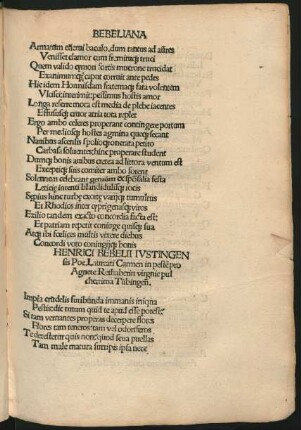 BEBELIANA
Armatum efferat baculo, dum tantus ad astres
Venisset clamor cum fremituq; truci
Quem valido cymon fortis mucrone trucidat
Exanimumq; caput corruit ante pedes
Hic idem Hormisdam fraternaq; fata volentem
Vlcisci interimit: pessimus hostis amor
Longa res: cremora est media de plebe iacentes
Effususq; cruor atria tota replet
Ergo ambo celeres properant contingere portum
Per medios hostes agmina quoq; secant
Nauibus ascendis spolioq; onerata petito
Carbasa soluentes hinc properare student
Dumq; bonis auibus creta ad littora ventum est
Excepitq; suis comiter ambo forent
Solennem celebrant genium et sponsalia festa
Letitie intenti blanditiisq; iocis
Sepius hinc turbe exorte variiq; tumultus
Et Rhodios inter cyprigenasq; viros
Exilio tandem exacto concordia facta est;
Et patriam repetit coniuge quisq; sua
Atq; ibi foelices multis vixere diebus
Concordi voto coniugiisq; bonis
HENRICI BEBELII IVSTINGEN
sis Poe. Laureati Carmen in pestem pro
Agnete Reisaberin virgine pul
cherrima Tübingen.
Impia crudelis furibunda immanis iniqua
Pestis: dic tutum quid te apud esse potest:
Si tam vernantes properas decerpere flores
Flores tam teneros: tam vel odoriferos
Te deresterer quis non: quod seua puellas
Tam male matura surripis ipsa nece